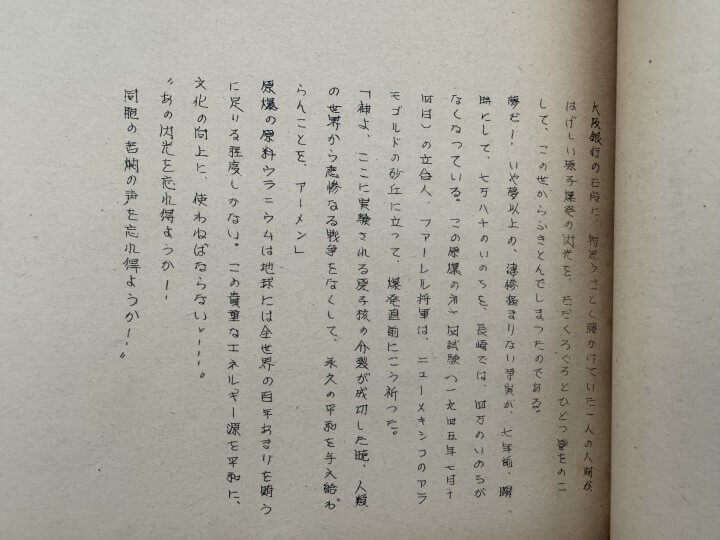 大阪銀行の石段に、物思うごとく腰かけていた一人の人間が
はげしい原子爆発の閃光を、ただくろぐろとひとつ影をのこ
して、この世からふきとんでしまつたのである。
夢だ！いや夢以上の、凄惨極まりない事実が、七年前、瞬
時にして、七万八千のいのちを、長崎では、四万のいのちが
なくなつている。この原爆の第一回試験（一九四五年七月十
四日）の立合人、ファーレル将軍は、ニューメキシコのアラ
モゴルドの砂丘に立つて、爆発直前にこう祈つた。
「神よ、ここに実験される原子核の分裂が成功した暁、人類
の世界から悲惨なる戦争をなくして、永久の平和を与へ給わ
らんことを、アーメン」
原爆の原料ウラニウムは地球には全世界の百年あまりを賄う
に足りる程度しかない。この貴重なエネルギー源を平和に、
文化の向上に、使わねばならないと……。
〝あの閃光を忘れ得ようか！
同胞の苦悶の声を忘れ得ようか！〟